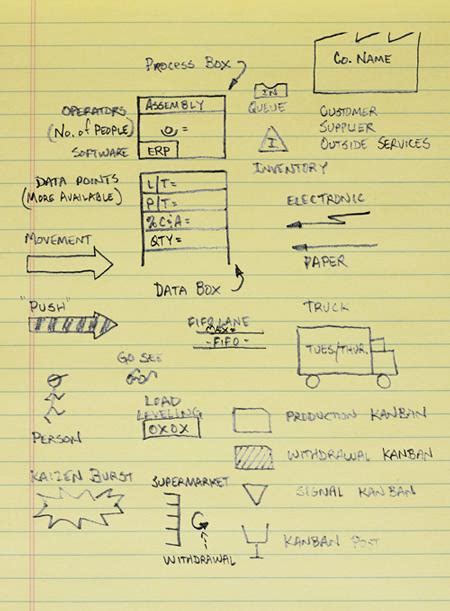 PROCESS BOX
CO. NAME
OPERATORS
(NO. OF PEOPLE)
SOFTWARE
ASSEMBLY
=
ERP
IN
QUEUE
I
INVENTORY
CUSTOMER
SUPPLIER
OUTSIDE SERVICES
DATA POINTS
(MORE AVAILABLE)
L/T=
P/T=
%C&A=
QTY=
DATA BOX
ELECTRONIC
PAPER
MOVEMENT
"PUSH"
FIFO LANE
MAX=
-FIFO-
TRUCK
TUES/THUR.
GO SEE
PERSON
LOAD
LEVELING
OXOX
PRODUCTION KANBAN
WITHDRAWAL KANBAN
SIGNAL KANBAN
KANBAN POST
KAIZEN BURST
SUPERMARKET
WITHDRAWAL